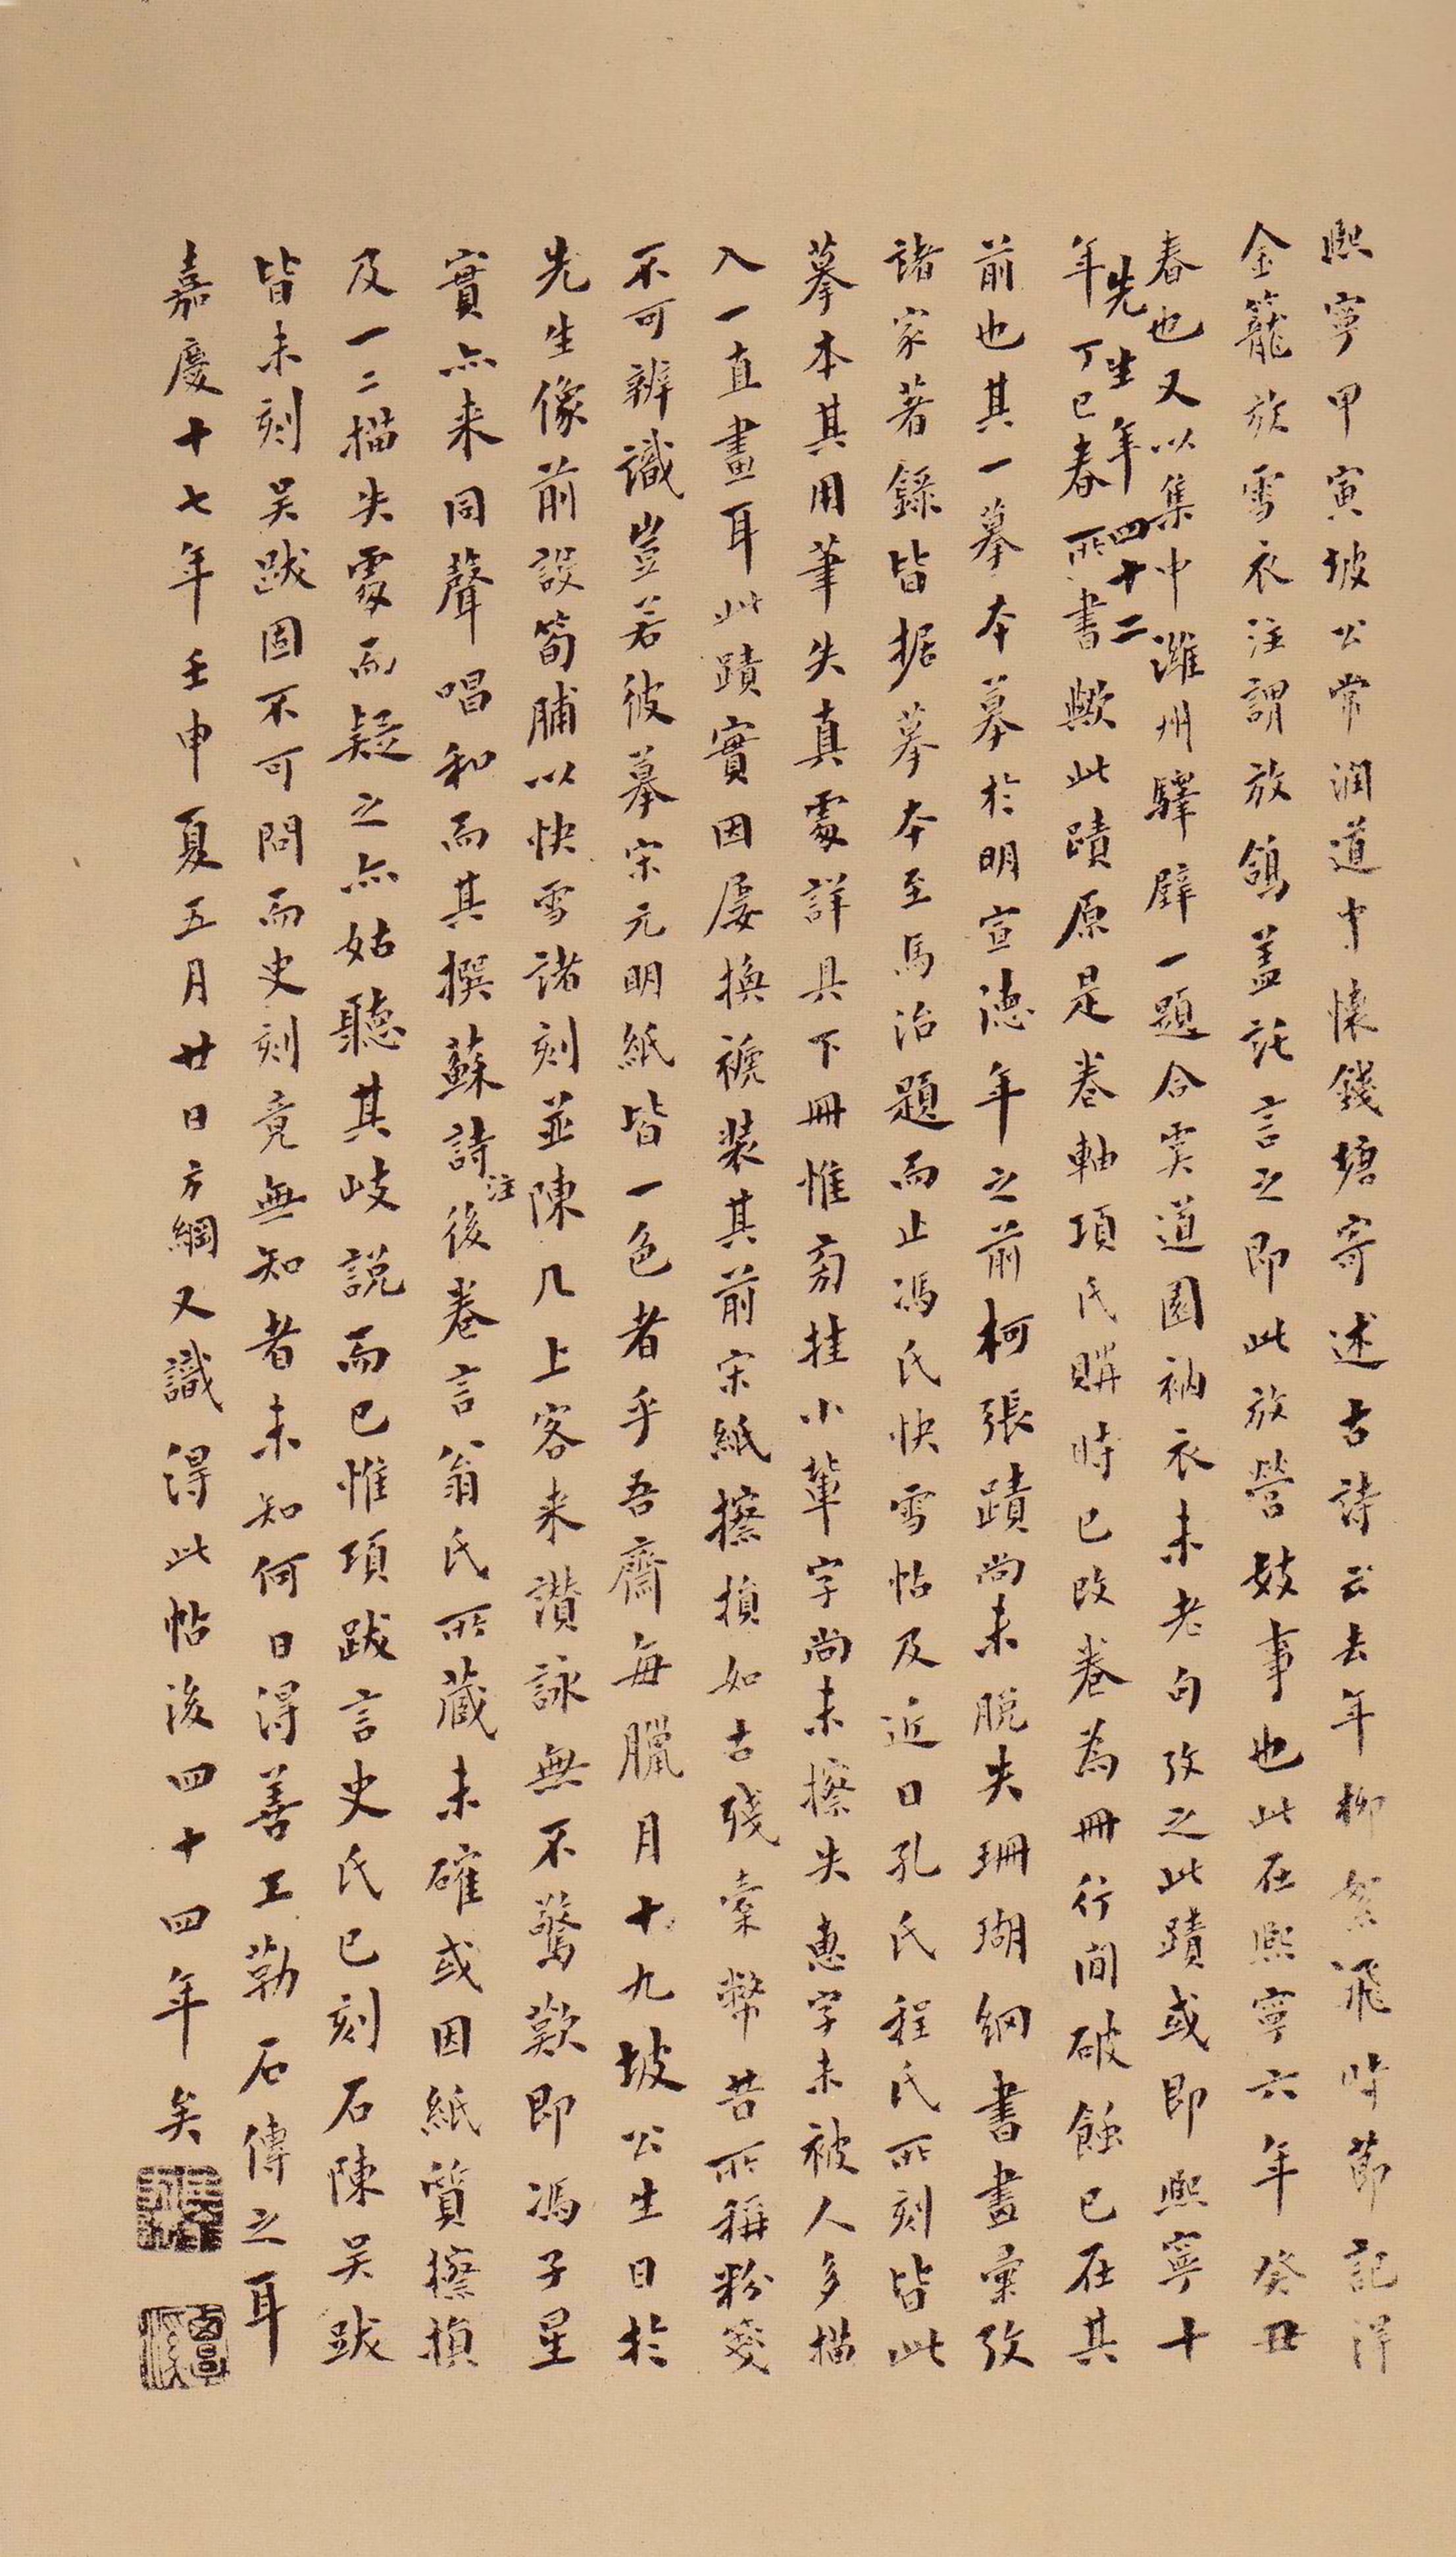 熙寧甲寅坡公常潤道中懷錢塘寄述古詩云去年柳絮飛時節記得
金籠放雪衣注謂放鴿蓋託言之即此放營妓事也此在熙寧六年癸丑
春也又以集中濰州驛壁一題合奚道園衲衣未老句攷之此蹟或即熙寧十
先生年四十二
年丁巳春所書歟此蹟原是卷軸項氏購時已改卷為冊行間破蝕已在其
前也其一摹本摹於明宣德年之前柯張蹟尚未脫失珊瑚網書畫彙攷
諸家著錄皆据摹本至馬治題而止馮氏快雪帖及近日孔氏程氏所刻皆此
摹本其用筆失真處詳具下冊惟剪挂小葦字尚未擦失惠字未被人多描
入一直畫耳此蹟實因屢換褫裝其前宋紙擦損如古殘槖幣昔所稱粉箋
不可辨識豈若彼摹宋元明紙皆一色者乎吾齋每臘月十九坡公生日於
先生像前設筍脯以快雪諸刻並陳几上客來讚詠無不驚歎即馮子星
實亦來同聲唱和而其撰蘇詩注後卷言翁氏所藏未確或因紙質擦損
及一二描失處而疑之亦姑聽其歧説而已惟項跋言史氏已刻石陳吴跋
皆未刻吴跋固不可問而史刻竟無知者未知何日得善工勒石傳之耳
嘉慶十七年壬申夏五月廿日方綱又識得此帖後四十四年矣